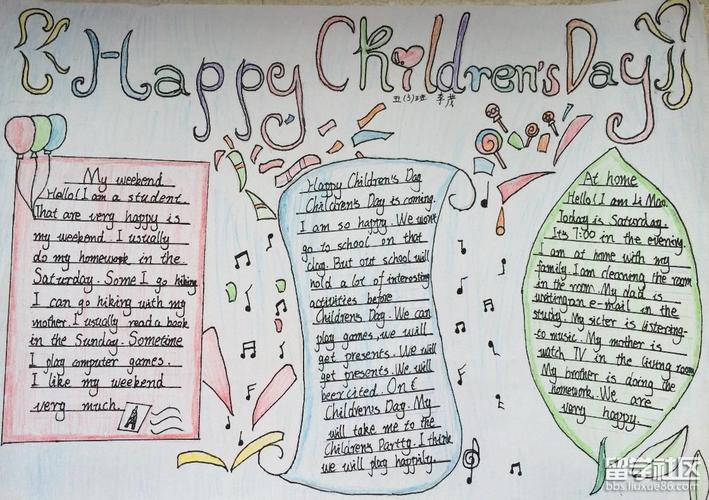 Happy Children's Day
五(3)班 李茂
My weekend
Hello! I am a student.
That are very happy is
my weekend. I usually
do my homework in the
Saturday. Some I go hiking
I can go hiking with my
mother. I usually read a book
in the Sunday. Sometime
I play computer games.
I like my weekend
very much.
A
Happy Children's Day
Children's Day is coming.
I am so happy. We won't
go to school on that
day. But out school will
hold a lot of interesting
activities before
Children's Day. We can
play games, we will
get presents. We will
get presents. We will
beexcited. On
Children's Day. My
will take me to the
Children's Partty. I think
we will play happily.
At home
Hello! I am Li Mao.
Today is Saturday.
It's 7:00 in the evening.
I am at home with my
family. I am cleaning the room
in the room. My dad is
writingan e-mail in the
study. My sister is listening-
to music. My mother is
watch TV in the living room
My brother is doing the
homework. We are
very happy.
留学社区
bbs.liuxue86.com